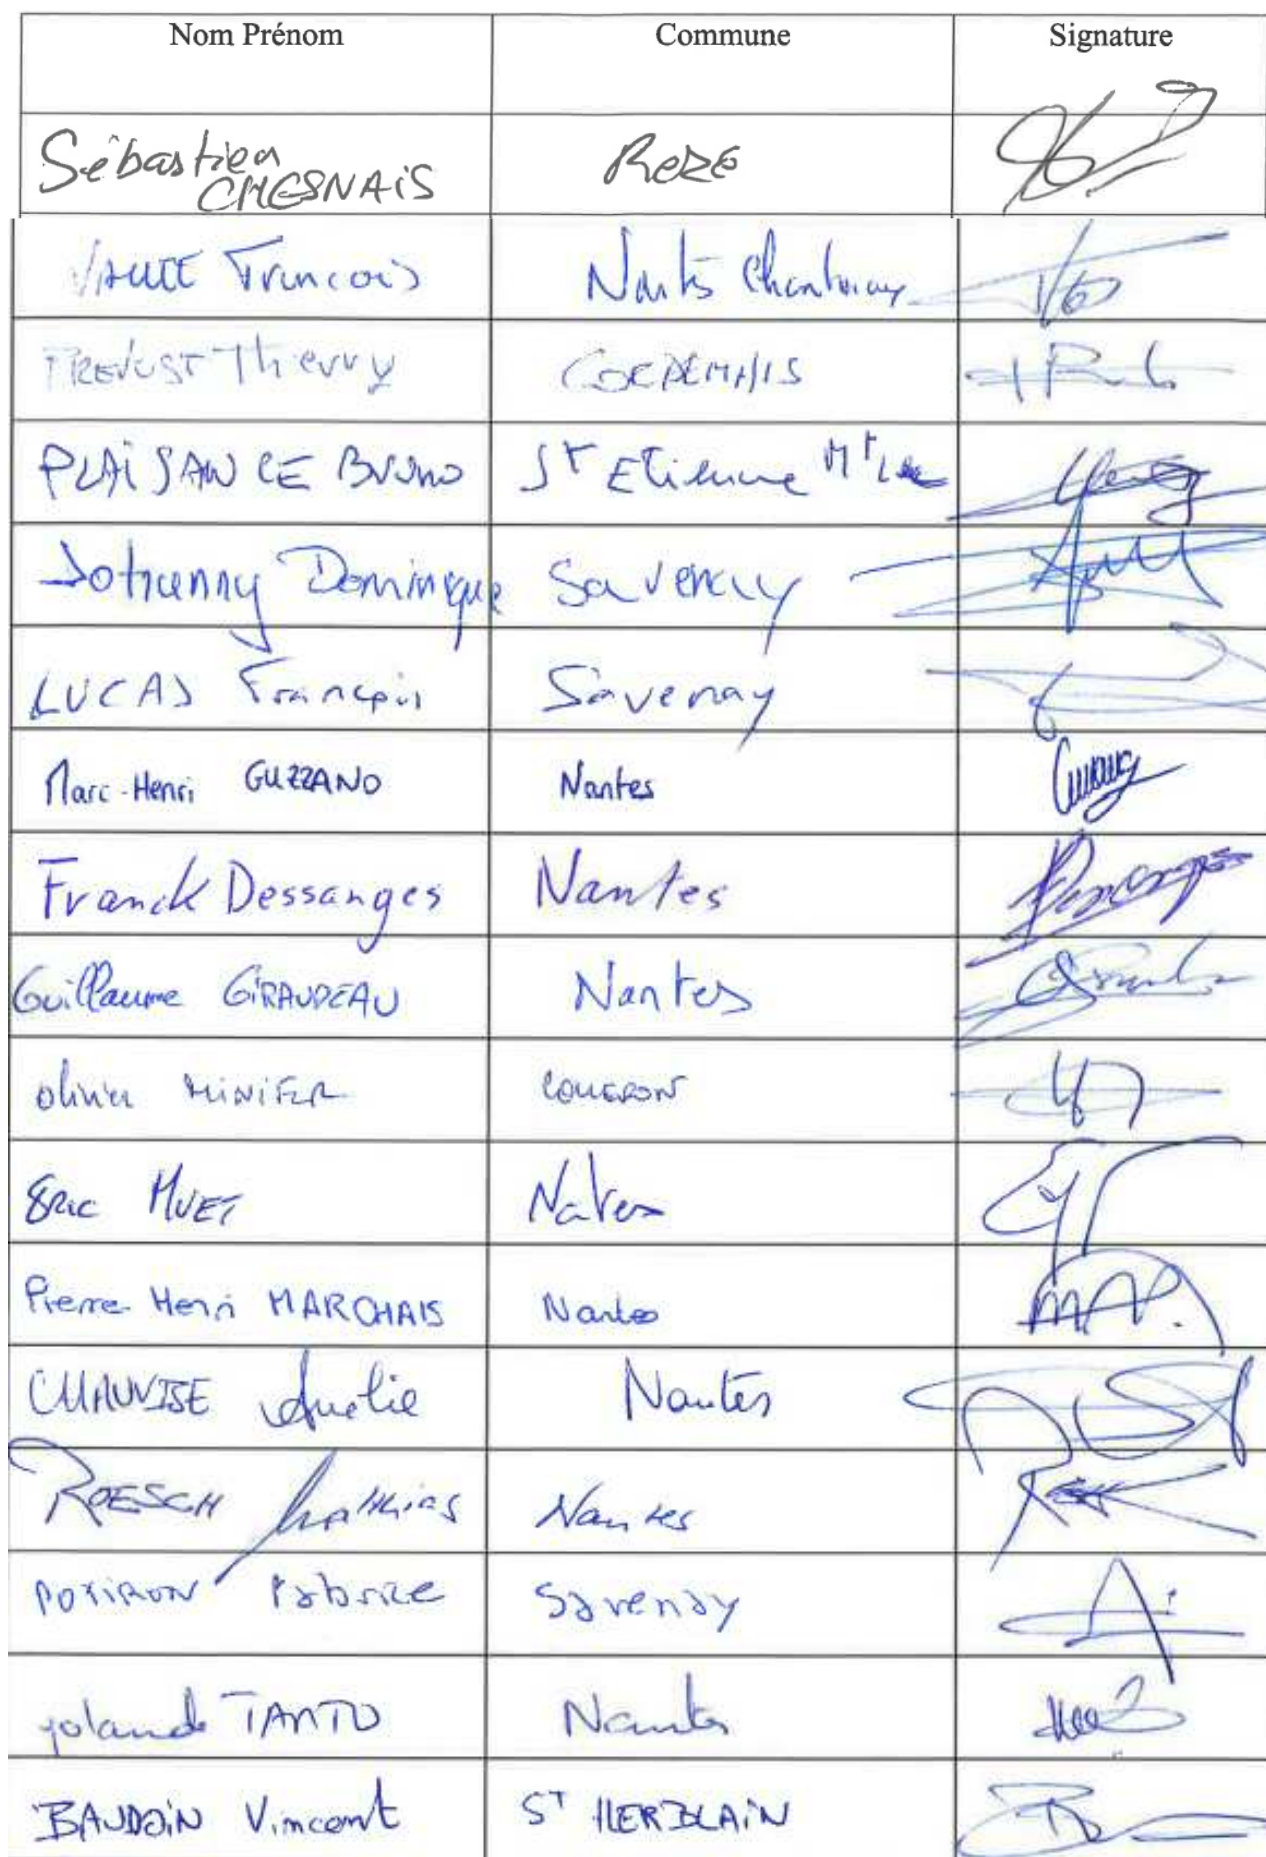 Nom Prénom Commune Signature
Sébastien CHESNAIS REZE
François Nantes Chantenay
PREVOST Thierry CORDEMAIS
PLAISANCE Bruno St Etienne Mt Luc
Johanny Dominique Savenay
LUCAS François Savenay
Marc-Henri GUZZANO Nantes
Franck Dessanges Nantes
Guillaume GIRAUDEAU Nantes
olivier MINIER COUERON
ERic HUET Nantes
Pierre-Henri MARCHAIS Nantes
CHAUVISE Aurélie Nantes
ROESCH Matthias Nantes
POTIRON Fabrice Savenay
yolande TANTO Nantes
BAUDOIN Vincent ST HERBLAIN